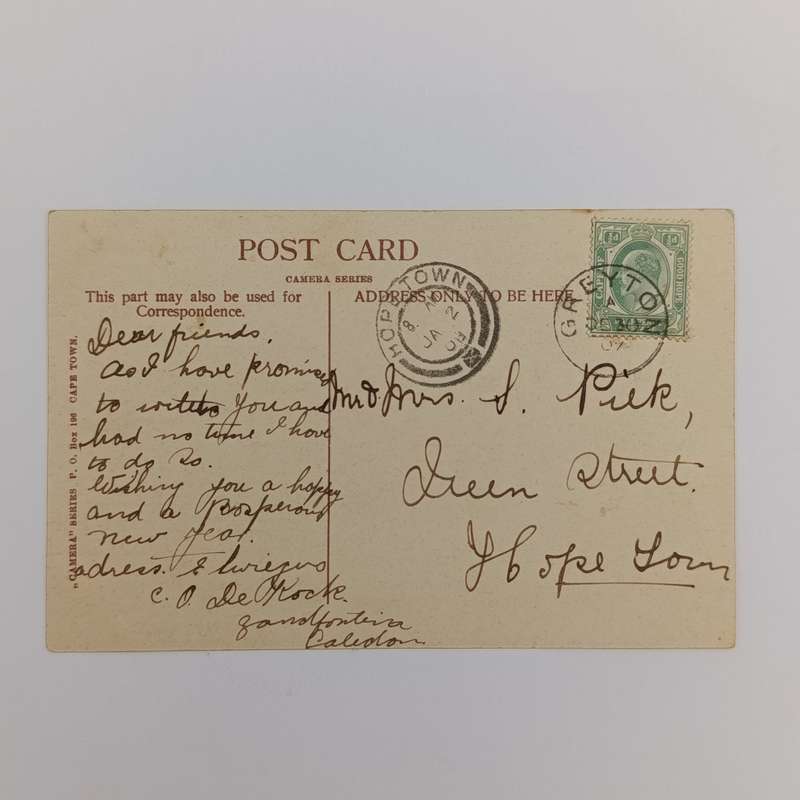 POST CARD
CAMERA SERIES
This part may also be used for
Correspondence.
ADDRESS ONLY TO BE HERE
"CAMERA" SERIES P. O. Box 196 CAPE TOWN.
HOPETOWN
8 A
JA 2
09
GREYTON
A
DE 30
½d ½d
GOOD HOPE
Dear friends,
As I have promised
to write You and
had no time I have
to do so.
Wishing you a happy
and a Prosperous
new year.
adress.
C. O. De Kock.
Zandfontein
Caledon
Mr & Mrs. S. Piek,
Green Street.
Hope Town